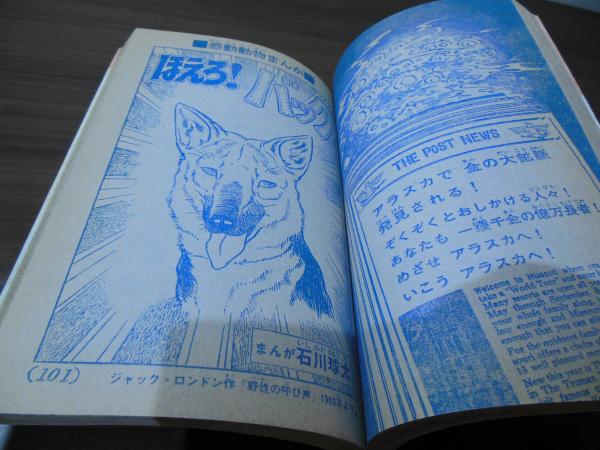 ■感動動物まんが■
ほえろ!
バック
まんが石川球太
(101)
ジャック・ロンドン作「野性の呼び声」1903年より
THE POST NEWS
アラスカで 金の大鉱脈
発見される!
ぞくぞくとおしかける人々!
あなたも 一攫千金の億万長者!
めざせ アラスカへ!
いこう アラスカへ!
Welcome to Missouri where you
take a "World Tour" and
Many resorts are open all
May through September,
your whole family
low enough and Missouri
enough that you can
For the outdoor family
souri offers
13 well planned
New this year is
in The Truman
bit famous